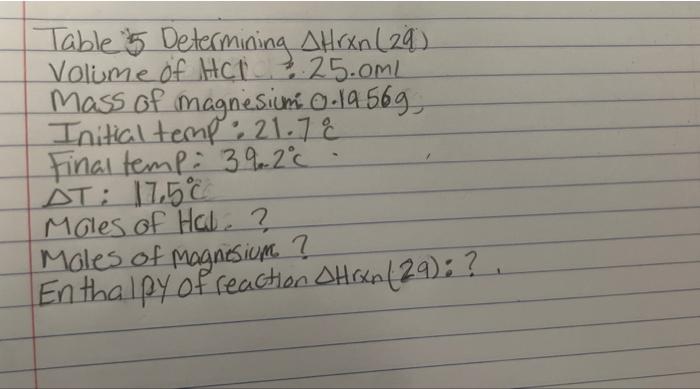 Table 5 Determining ΔHrxn(29)
Volume of HCl : 25.0ml
Mass of magnesium: 0.1956g,
Initial temp : 21.7℃
Final temp: 39.2℃
ΔT : 17.5℃
Moles of Hcl. ?
Moles of magnesium ?
Enthalpy of reaction ΔHrxn(29): ? .